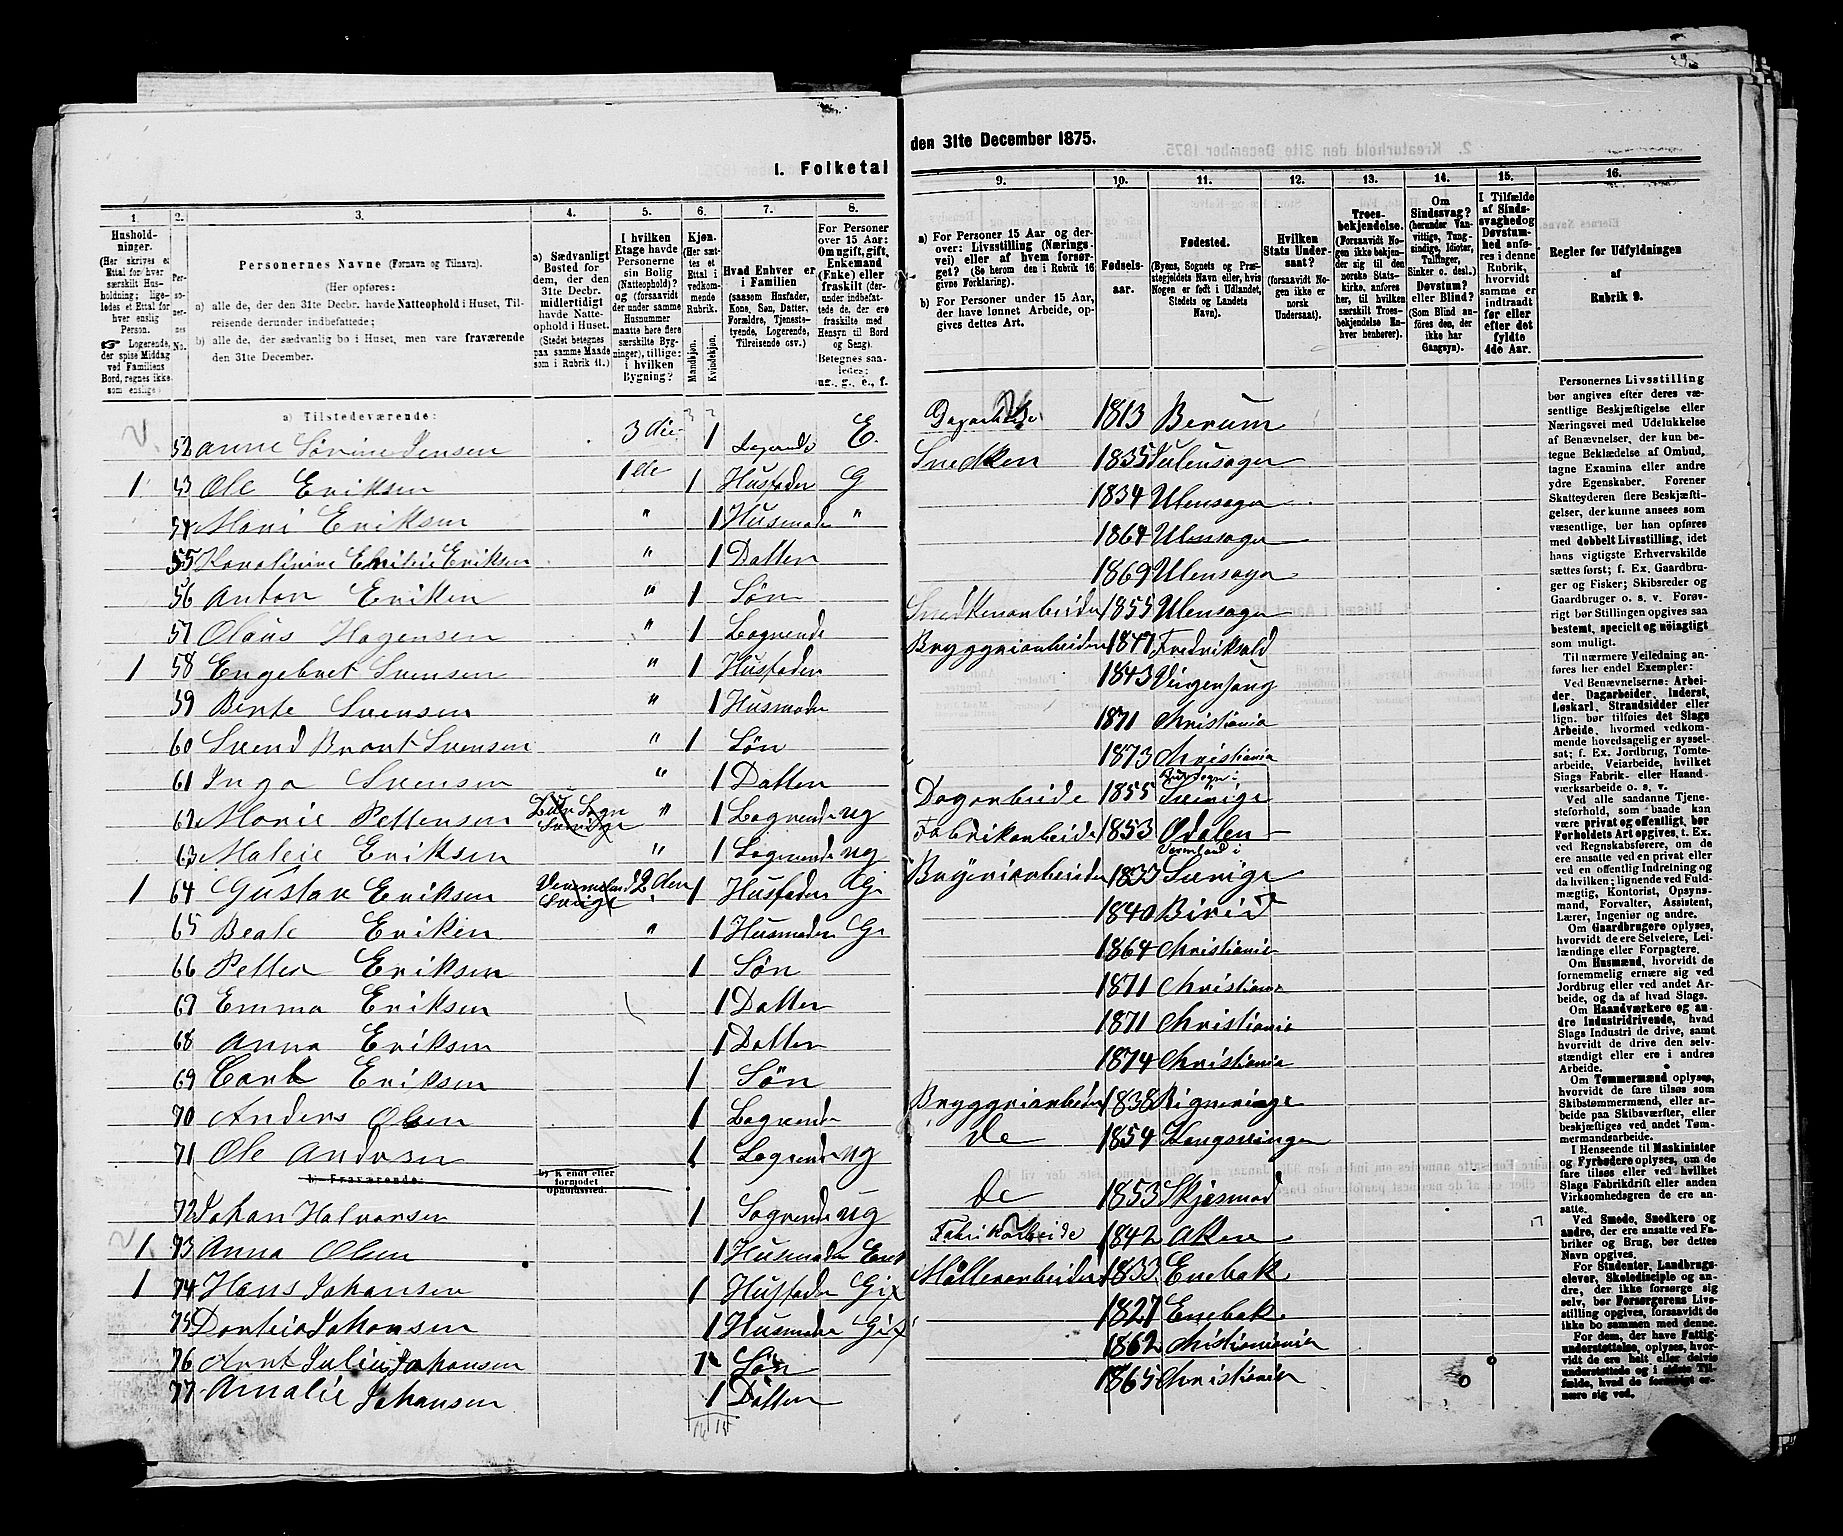 I. Folketal
den 31te December 1875.
1. 2. 3. 4. 5. 6. 7. 8. 9. 10. 11. 12. 13. 14. 15. 16.
Husholdninger.
(Her skrives et Ettal for hver særskilt Husholdning; ligeledes et Ettal for hver enslig Person.
☞ Logerende, der spise Middag ved Familiens Bord, regnes ikke som enslige.)
Personernes No.
Personernes Navne (Fornavn og Tilnavn).
(Her opføres:
a) alle de, der den 31te Decbr. havde Natteophold i Huset, Tilreisende derunder indbefattede;
b) alle de, der sædvanlig bo i Huset, men vare fraværende den 31te December.
a) Sædvanligt Bosted for dem, der den 31te Decbr. midlertidigt havde Natteophold i Huset. (Stedet betegnes paa samme Maade som i Rubrik 11.)
I hvilken Etage havde Personerne sin Bolig (Natteophold)? og (forsaavidt der under samme Husnummer maatte høre flere særskilte Bygninger), tillige: i hvilken Bygning?
Kjøn. (Her sættes et Ettal i vedkommende Rubrik.
Mandkjøn. Kvindekjøn.
Hvad Enhver er i Familien
(saasom Husfader, Kone, Søn, Datter, Forældre, Tjenestetyende, Logerende, Tilreisende osv.)
For Personer over 15 Aar: Om ugift, gift, Enkemand (Enke) eller fraskilt (derunder indbefattede de, der ere fraskilte med Hensyn til Bord og Seng).
Betegnes saaledes: ug., g., e., f.
a) For Personer 15 Aar og derover: Livsstilling (Næringsvei) eller af hvem forsørget? (Se herom den i Rubrik 16 givne Forklaring).
b) For Personer under 15 Aar, der have lønnet Arbeide, opgives dettes Art.
Fødselsaar.
Fødested.
(Byens, Sognets og Præstegjeldets Navn eller, hvis Nogen er født i Udlandet, Stedets og Landets Navn).
Hvilken Stats Undersaat?
(forsaavidt Nogen ikke er norsk Undersaat).
Troesbekjendelse.
(Forsaavidt Nogen ikke bekjender sig til den norske Statskirke, anføres her, til hvilken særskilt Troesbekjendelse Enhver henhører).
Om Sindssvag? (herunder Vanvittige, Tungsindige, Idioter, Tullinger, Sinker o. desl.) Døvstum? eller Blind? (Som Blind anføres den, der ikke har Gangsyn).
I Tilfælde af Sindssvaghed og Døvstumhed anføres i denne Rubrik, hvorvidt samme er indtraadt før eller efter det fyldte 4de Aar.
Regler for Udfyldningen af Rubrik 9.
a) Tilstedeværende:
52 Anne Sørine Jensen 3die 1 Logerende E. Dagarbeide 1813 Berum
1 53 Ole Eriksen 1de 1 Husfader G Snedker 1835 Ulensager
54 Mari Eriksen " 1 Husmoder " 1834 Ulensager
55 Karolinine Emilie Eriksen " 1 Datter 1864 Ulensager
56 Anton Eriksen " 1 Søn 1869 Ulensager
57 Olaus Hagensen " 1 Logrende Snedkerarbeider 1855 Ulensager
1 58 Engebret Svensen " 1 Husfader Bryggriarbeider 1847 Fredriksald
59 Berte Svensen " 1 Husmoder 1843 Vingersang
60 Svend Brant Svensen " 1 Søn 1871 Christiania
61 Inga Svensen " 1 Datter 1873 Christiania
62 Marie Pettersen Sverige " 1 Logrende ug Dagarbeide 1855 Sverige
63 Maleie Eriksen " 1 Logrende ug Fabrikarbeide 1853 Odalen
1 64 Gustav Eriksen Vermeland Sverige 2den 1 Husfader G Brygeriarbeider 1833 Vermland i Sverige
65 Beate Eriken " 1 Husmoder G 1840 Birid
66 Petter Eriksen 1 Søn 1864 Christiania
67 Emma Eriksen 1 Datter 1871 Christiania
68 Anna Eriksen 1 Datter 1871 Christiania
69 Carl Eriksen 1 Søn 1874 Christiania
70 Anders Olsen 1 Logrende Bryggriarbeider 1838 Rigneringe
71 Ole Andersen 1 Logrende ug de 1854 Kongsvinger
b) Fraværende: b) Kjendt eller formodet Opholdssted.
72 Johan Halvorsen 1 Logrende ug de 1853 Skjesmod
1 73 Anna Olsen 1 Husmoder Enk Fabrikarbeide 1842 Aker
1 74 Hans Johansen 1 Husfader Gif Møllerarbeider 1833 Enebak
75 Dorteia Johansen 1 Husmoder Gif 1827 Enebak
76 Arnt Julius Johansen 1 Søn 1862 Christianinia
77 Amalie Johansen 1 Datter 1865 Christiania
Personernes Livsstilling bør angives efter deres væsentlige Beskjæftigelse eller Næringsvei med Udelukkelse af Benævnelser, der kun betegne Beklædelse af Ombud, tagne Examina eller andre ydre Egenskaber. Forener Skatteyderen flere Beskjæftigelser, der kunne ansees som væsentlige, bør han opføres med dobbelt Livsstilling, idet hans vigtigste Erhvervskilde sættes først; f. Ex. Gaardbruger og Fisker; Skibsreder og Gaardbruger o. s. v. Forøvrigt bør Stillingen opgives saa bestemt, specielt og nøiagtigt som muligt.
Til nærmere Veiledning anføres her endel Exempler:
Ved Benævnelserne: Arbeider, Dagarbeider, Inderst, Løskarl, Strandsidder eller lign. bør tilføies det Slags Arbeide, hvormed vedkommende hovedsagelig er sysselsat; f. Ex. Jordbrug, Tomtearbeide, Veiarbeide, hvilket Slags Fabrik- eller Haandværksarbeide o. s. v.
Ved alle saadanne Tjenesteforhold, som baade kan være privat og offentligt, bør Forholdets Art opgives, t. Ex. ved Regnskabsførere, om de ere ansatte ved en privat eller ved en offentlig Indretning og da hvilken; lignende ved Fuldmægtig, Kontorist, Opsynsmand, Forvalter, Assistent, Lærer, Ingeniør og andre.
Om Gaardbrugere oplyses, hvorvidt de ere Selveiere, Leilændinge eller Forpagtere.
Om Husmænd, hvorvidt de fornemmelig ernære sig ved Jordbrug eller ved andet Arbeide, og da af hvad Slags.
Om Haandværkere og andre Industridrivende, hvad Slags Industri de drive, samt hvorvidt de drive den selvstændigt eller ere i andres Arbeide.
Om Tømmermænd oplyses, hvorvidt de fare tilsøs som Skibstømmermænd, eller arbeide paa Skibsværfter, eller beskjæftiges ved andet Tømmermandsarbeide.
I Henseende til Maskinister og Fyrbødere oplyses, om de fare tilsøs eller ved hvilket Slags Fabrikdrift eller anden Virksomhed de ere ansatte.
Ved Smede, Snedkere og andre, der ere ansatte ved Fabriker og Brug, bør dettes Navn opgives.
For Studenter, Landbrugselever, Skoledisciple og andre, der ikke forsørge sig selv, bør Forsørgerens Livsstilling opgives, forsaavidt de ikke bo sammen med denne.
For dem, der have Fattigunderstøttelse, oplyses, hvorvidt de ere helt eller delvis understøttede og i sidste Tilfælde, hvad de forøvrigt ernære sig ved.